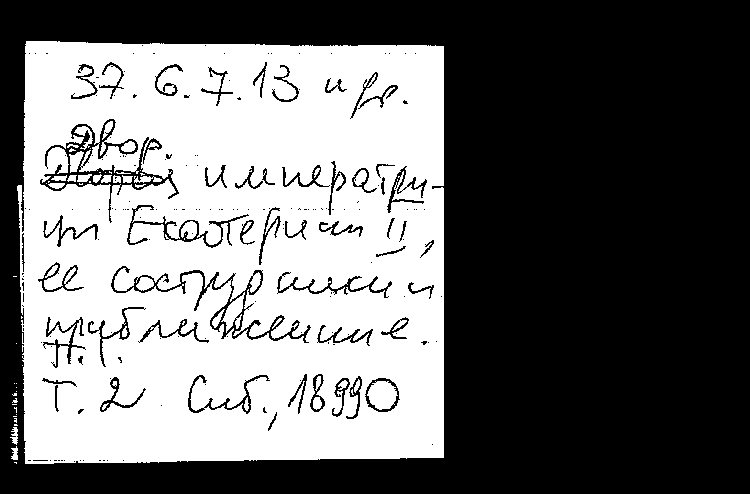 37. 6. 7. 13 и др.
Двор
императри-
цы Екатерины II,
ее сотрудники и
приближенные.
Т. 1.
Т. 2 Спб., 18990